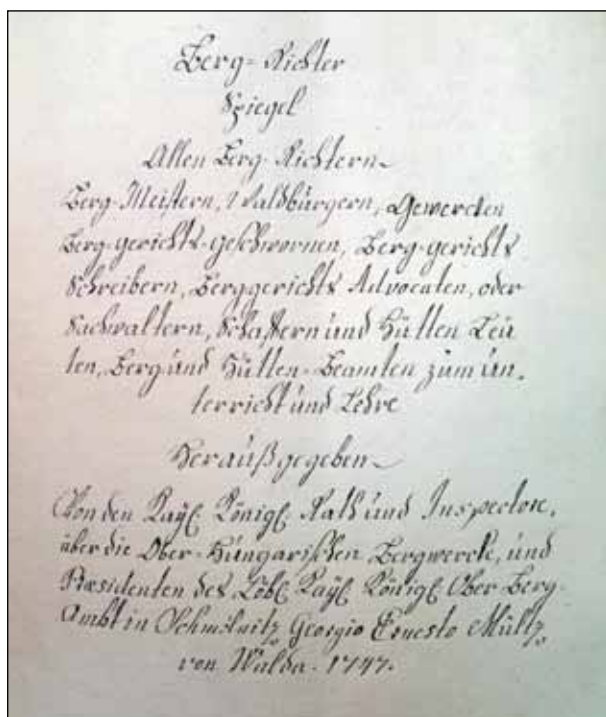 Berg-Richter
Spiegel
Allen Berg-Richtern
Berg-Meistern, Waldbürgern, Gewercken
Berg-gerichts-geschwornen, Berg-gerichts
Schreibern, Berggerichts Advocaten, oder
Sachwaltern, Schaffern und Hütten Leü
ten, Berg und Hütten-Beamten zum ün-
terricht und Lehre
Heraußgegeben
Von den Kayl Königl Rath und Inspectore,
über die Ober-Hungarischen Bergwercke, und
Præsidenten des Löbl Kayl Königl Ober Berg-
Ambt in Schmölnitz Georgio Ernesto Mültz
von Walda. 1747.